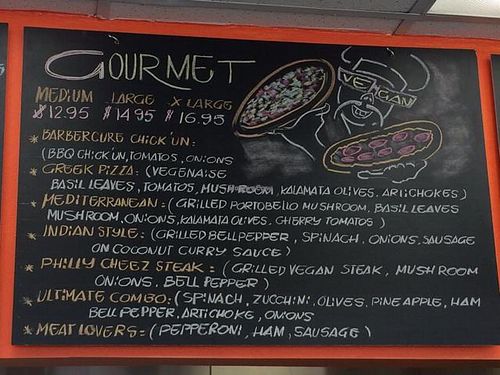 GOURMET
MEDIUM LARGE X LARGE
$12.95 $14.95 $16.95
VEGAN
* BARBERCURE CHICK'UN:
(BBQ CHICK'UN, TOMATOS, ONIONS
* GREEK PIZZA: (VEGENAISE
BASIL LEAVES, TOMATOS, MUSHROOM, KALAMATA OLIVES, ARTICHOKES)
* MEDITERRANEAN: (GRILLED PORTOBELLO MUSHROOM, BASIL LEAVES
MUSHROOM, ONIONS, KALAMATA OLIVES, CHERRY TOMATOS)
* INDIAN STYLE: (GRILLED BELL PEPPER, SPINACH, ONIONS, SAUSAGE
ON COCONUT CURRY SAUCE)
* PHILLY CHEEZ STEAK: (GRILLED VEGAN STEAK, MUSHROOM
ONIONS, BELL PEPPER)
* ULTIMATE COMBO: (SPINACH, ZUCCHINI, OLIVES, PINEAPPLE, HAM
BELL PEPPER, ARTICHOKE, ONIONS
* MEAT LOVERS: (PEPPERONI, HAM, SAUSAGE)